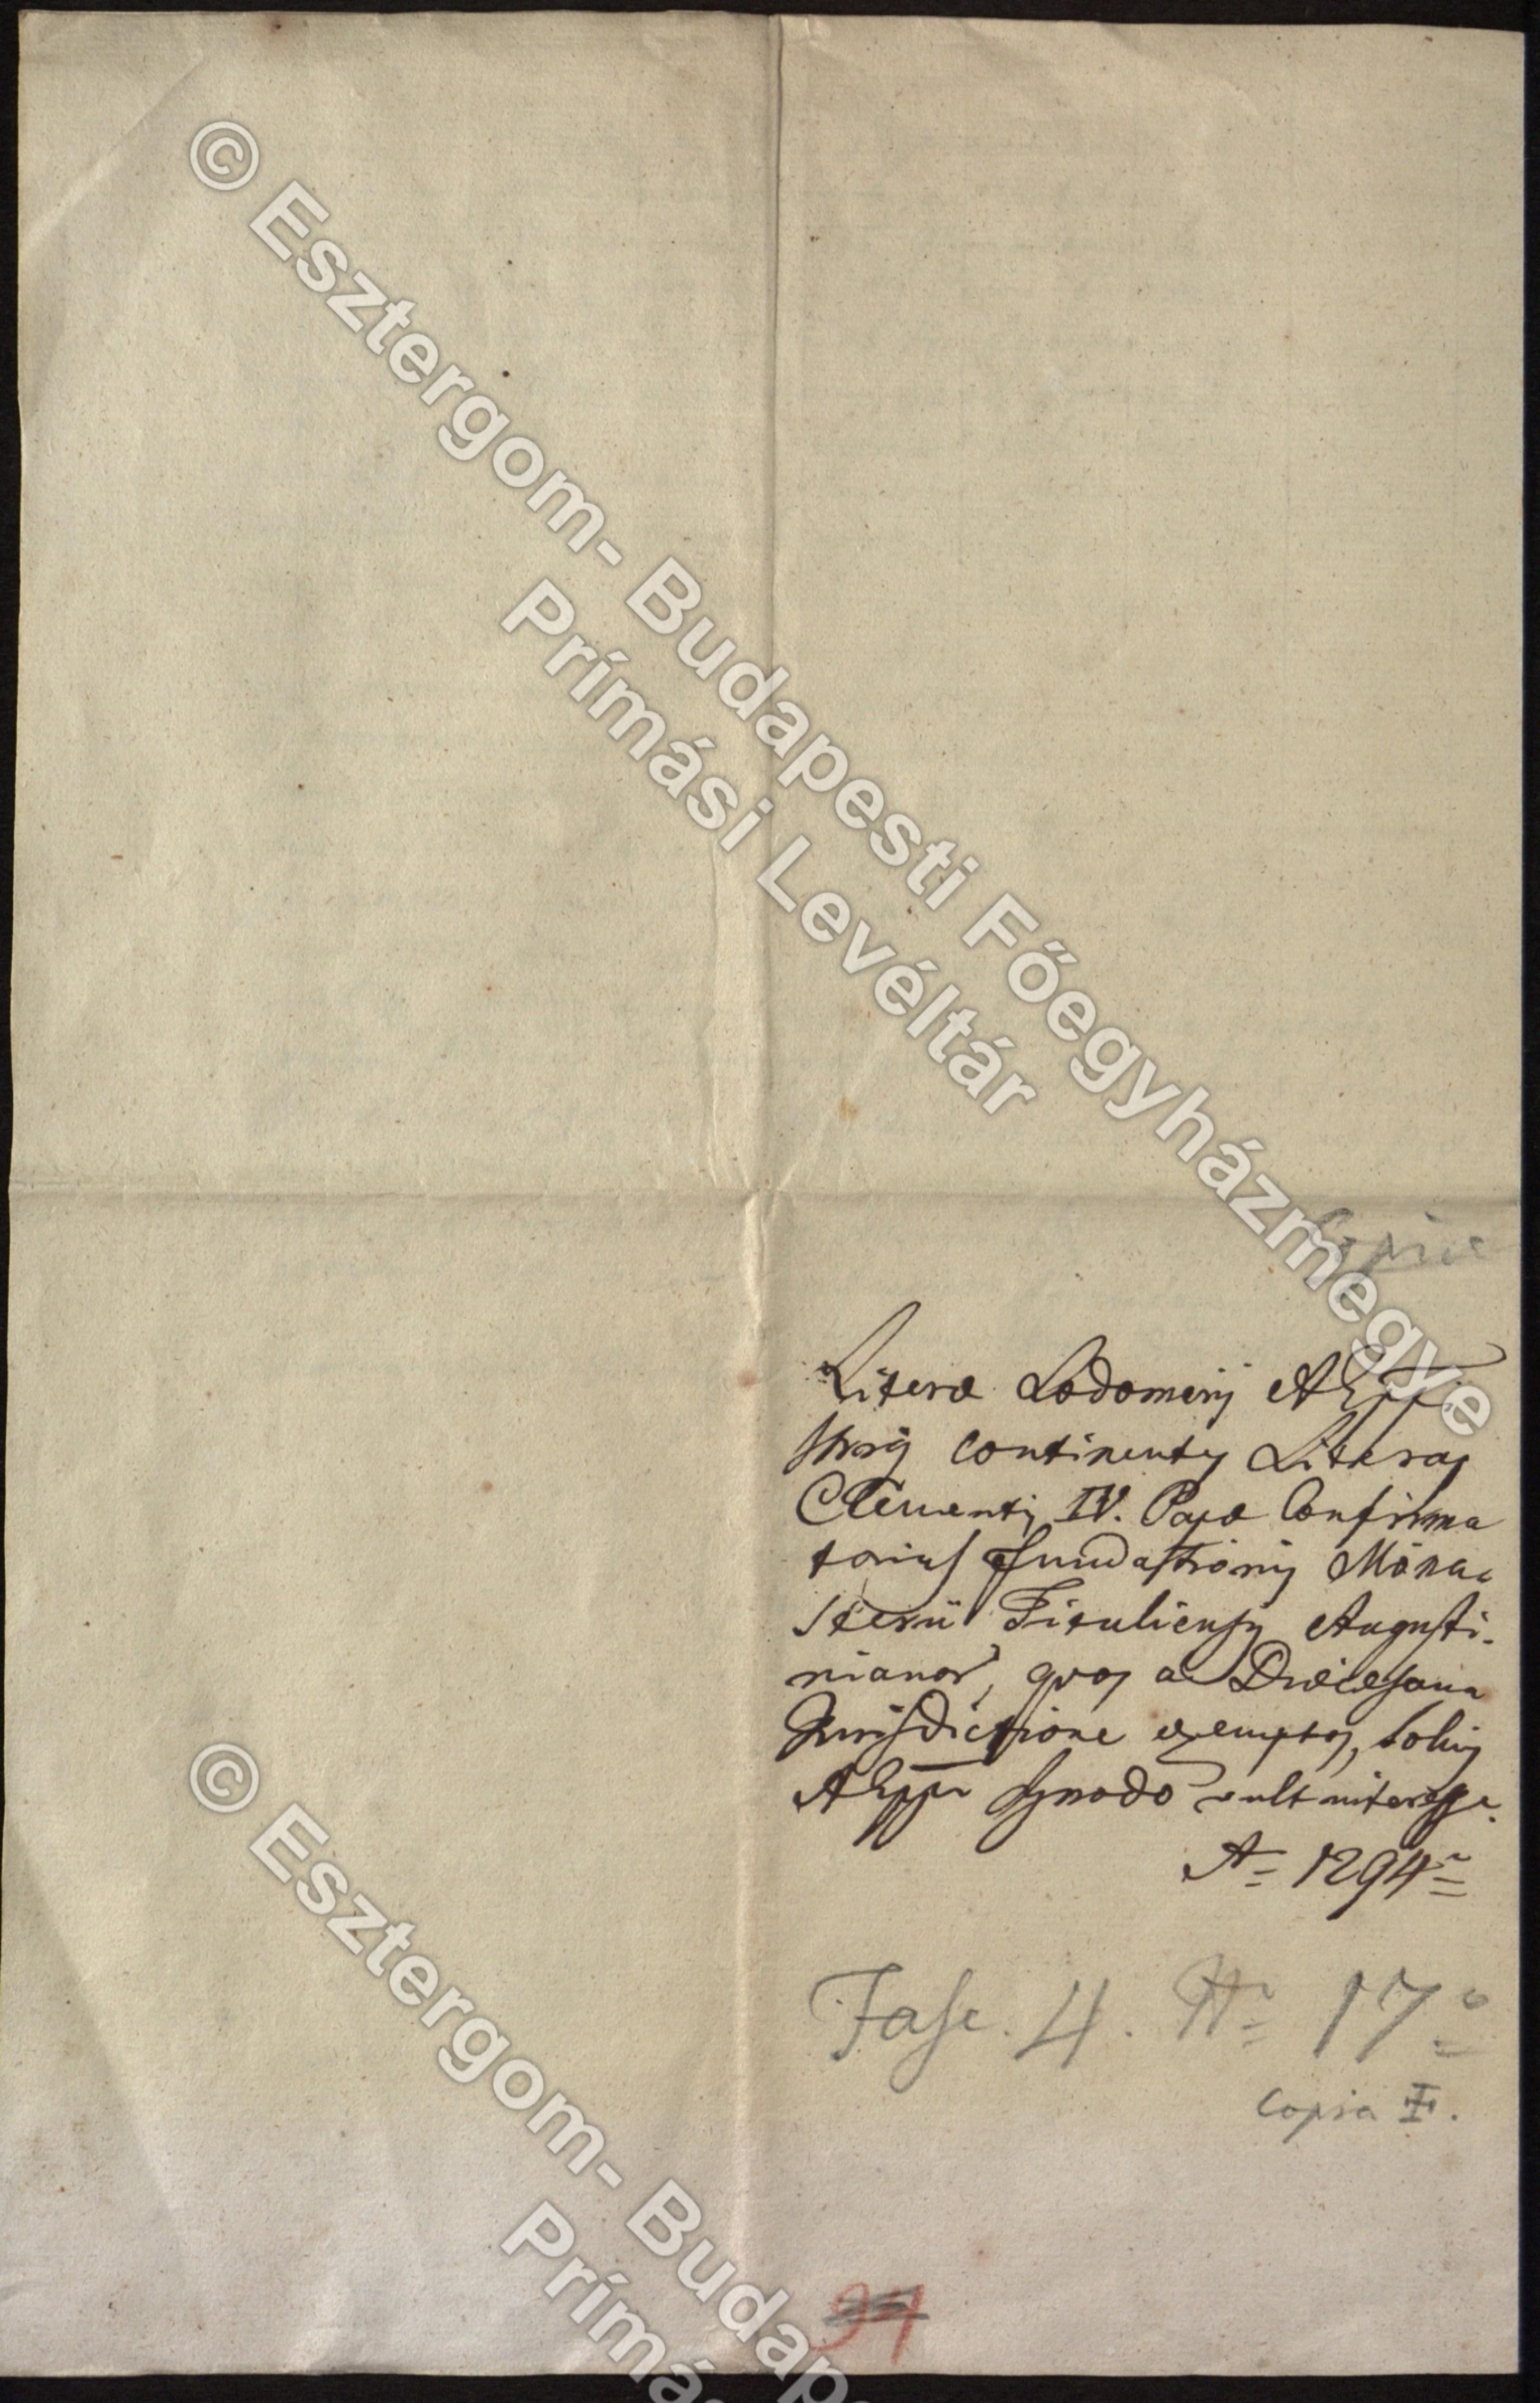 © Esztergom- Budapesti Főegyházmegye
Prímási Levéltár
Copia
Literæ Lodomerij AEppi
Strig continentes Literas
Clementis IV. Papæ Confirma
torias fundationis Mona
sterii Fituliensis Augusti-
nianor, quos a Diœcesana
Jurisdictione exemptos, solius
AEppi Synodo vult interesse.
A 1294
Fasc. 4. N 17
Copia I.
© Esztergom- Budap
Prímá